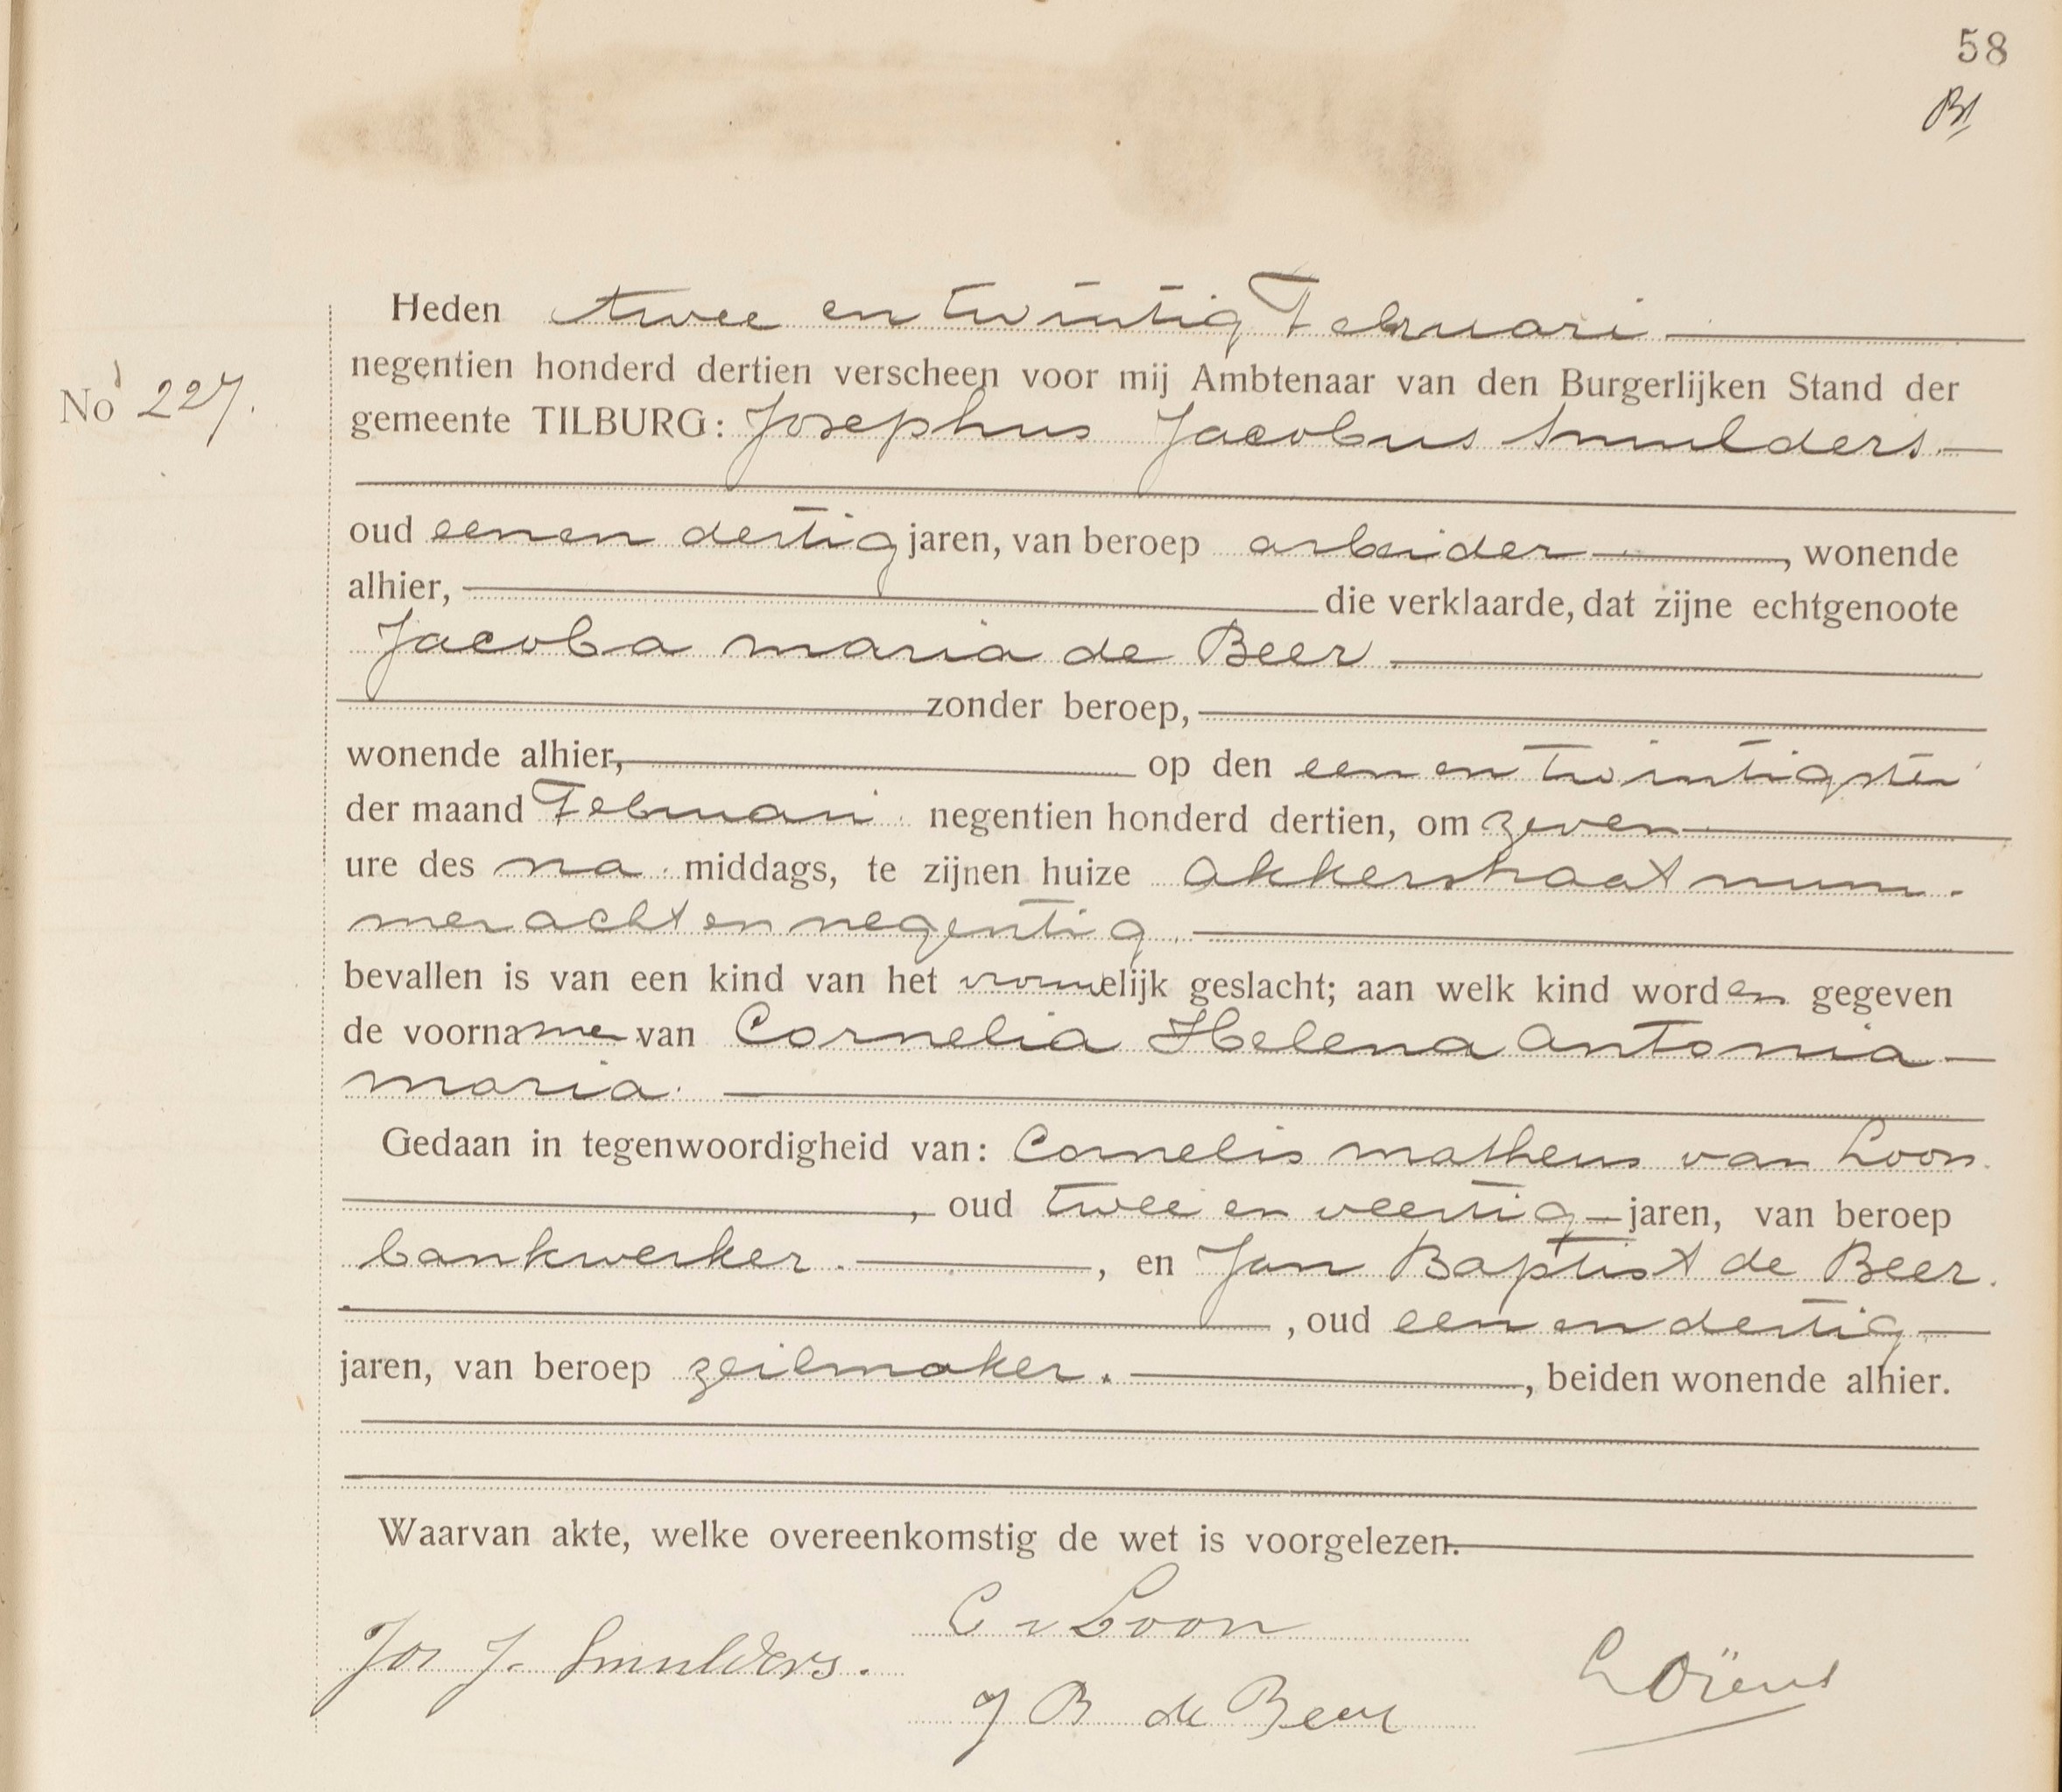 58
Heden twee en twintig Februari
negentien honderd dertien verscheen voor mij Ambtenaar van den Burgerlijken Stand der
No 227.
gemeente TILBURG: Josephus Jacobus Smulders
oud eenen dertig jaren, van beroep arbeider, wonende
alhier, die verklaarde, dat zijne echtgenoote
Jacoba Maria de Beer
zonder beroep,
wonende alhier, op den een en twintigsten
der maand Februari negentien honderd dertien, om zeven
ure des na middags, te zijnen huize Akkerstraat num-
mer acht en negentig
bevallen is van een kind van het vrouwelijk geslacht; aan welk kind worden gegeven
de voorname van Cornelia Helena Antonia
Maria.
Gedaan in tegenwoordigheid van: Cornelis Matheus van Loon
, oud twee en veertig jaren, van beroep
bankwerker., en Jan Baptist de Beer.
, oud een en dertig
jaren, van beroep zeilmaker., beiden wonende alhier.
Waarvan akte, welke overeenkomstig de wet is voorgelezen.
C v Loon
Jos J. Smulders.
J B de Beer